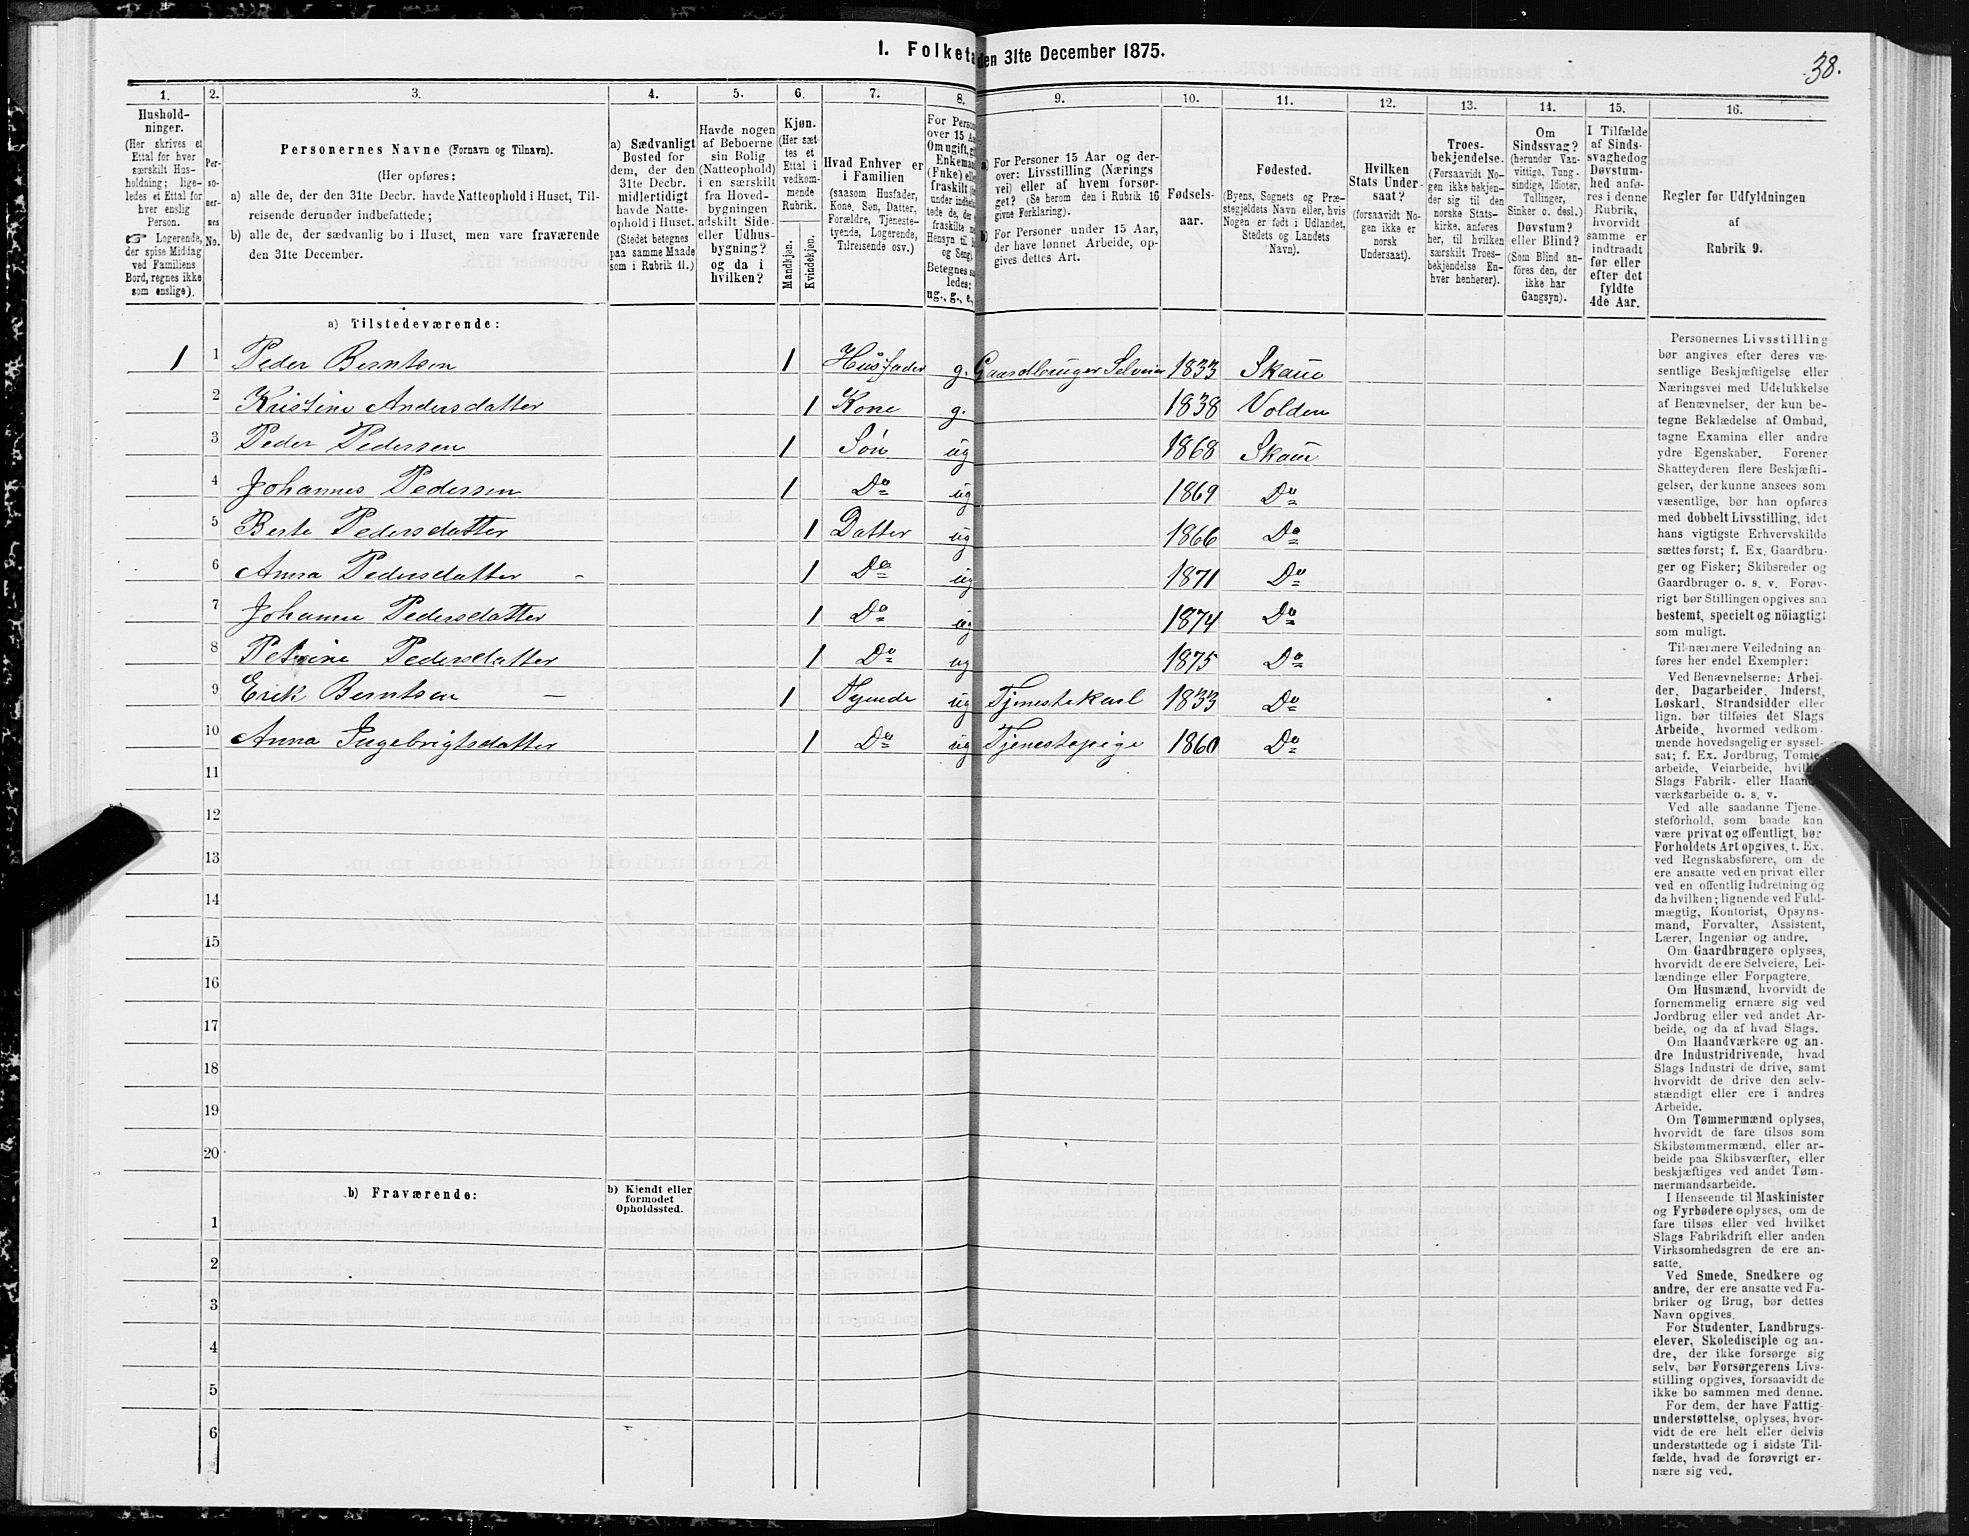 38.
I. Folketa den 31te December 1875.
1. 2. 3. 4. 5. 6. 7. 8. 9. 10. 11. 12. 13. 14. 15. 16.
Hushold-
ninger.
(Her skrives et
Ettal for hver
særskilt Hus-
holdning; lige-
ledes et Ettal for
hver enslig
Person.
☞ Logerende,
der spise Middag
ved Familiens
Bord, regnes ikke
som enslige).
Per-
so-
ner-
nes
No.
Personernes Navne (Fornavn og Tilnavn).
(Her opføres:
a) alle de, der den 31te Decbr. havde Natteophold i Huset, Til-
reisende derunder indbefattede;
b) alle de, der sædvanlig bo i Huset, men vare fraværende
den 31te December.
a) Sædvanligt
Bosted for
dem, der den
31te Decbr.
midlertidigt
havde Natte-
ophold i Huset.
(Stedet betegnes
paa samme Maade
som i Rubrik 11.)
Havde nogen
af Beboerne
sin Bolig
(Natteophold)
i en særskilt
fra Hoved-
bygningen
adskilt Side-
eller Udhus-
bygning?
og da i
hvilken?
Kjøn.
(Her sæt-
tes et
Ettal i
vedkom-
mende
Rubrik.
Mandkjøn.
Kvindekjøn.
Hvad Enhver er
i Familien
(saasom Husfader,
Kone, Søn, Datter,
Forældre, Tjeneste-
tyende, Logerende,
Tilreisende osv.)
For Person
over 15 Aa
Om ugift, g
Enkeman
(Fnke) elle
fraskilt
Betegnes sa
ledes:
ug., g., e.,
a) For Personer 15 Aar og der-
over: Livsstilling (Nærings
vei) eller af hvem forsør-
get? (Se herom den i Rubrik 16
givne Forklaring).
b) For Personer under 15 Aar,
der have lønnet Arbeide, op-
gives dettes Art.
Fødsels-
aar.
Fødested.
(Byens, Sognets og Præ-
stegjeldets Navn eller, hvis
Nogen er født i Udlandet,
Stedets og Landets
Navn).
Hvilken
Stats Under-
saat?
(forsaavidt No-
gen ikke er
norsk
Undersaat).
Troes-
bekjendelse.
(Forsaavidt No-
gen ikke bekjen-
der sig til den
norske Stats-
kirke, anføres
her, til hvilken
særskilt Troes-
bekjendelse En-
hver henhører).
Om
Sindssvag?
(herunder Van-
vittige, Tung-
sindige, Idioter,
Tullinger,
Sinker o. desl.)
Døvstum?
eller Blind?
(Som Blind an-
føres den, der
ikke har
Gangsyn).
I Tilfælde
af Sinds-
svaghedog
Døvstum-
hed anfø-
res i denne
Rubrik,
hvorvidt
samme er
indtraadt
før eller
efter det
fyldte
4de Aar.
Regler før Udfyldningen
af
Rubrik 9.
a) Tilstedeværende:
1 1 Peder Berntsen 1 Husfader g. Gaardbruger Selveier 1833 Skaun
2 Kristine Andersdatter 1 Kone g. 1838 Volden
3 Peder Pedersen 1 Søn ug 1868 Skaun
4 Johannes Pedersen 1 Do ug 1869 Do
5 Berte Pedersdatter 1 Datter ug 1866 Do
6 Anna Pedersdatter - 1 Do ug 1871 Do
7 Johanne Pedersdatter 1 Do ug 1874 Do
8 Petrine Pedersdatter 1 Do ug 1875 Do
9 Erik Berntsen - 1 Tyende ug Tjenestekarl 1833 Do
10 Anna Ingebrigtsdatter 1 Do ug Tjenestepige 1860 Do
11
12
13
14
15
16
17
18
19
20
b) Fraværende:
b) Kjendt eller
formodet
Opholdssted.
1
2
3
4
5
6
Personernes Livsstilling
bør angives efter deres væ-
sentlige Beskjæftigelse eller
Næringsvei med Udelukkelse
af Benævnelser, der kun be-
tegne Beklædelse af Ombud,
tagne Examina eller andre
ydre Egenskaber. Forener
Skatteyderen flere Beskjæfti-
gelser, der kunne ansees som
væsentlige, bør han opføres
med dobbelt Livsstilling, idet
hans vigtigste Erhvervskilde
sættes først; f. Ex. Gaardbru-
ger og Fisker; Skibsreder og
Gaardbruger o. s. v. Forøv-
rigt bør Stillingen opgives saa
bestemt, specielt og nöiagtigt
som muligt.
Til nærmere Veiledning an-
føres her endel Exempler:
Ved Benævnelserne: Arbei-
der, Dagarbeider, Inderst,
Løskarl, Strandsidder eller
lign. bør tilføies det Slags
Arbeide, hvormed vedkom-
mende hovedsagelig er syssel-
sat; f. Ex. Jordbrug, Tomte-
arbeide, Veiarbeide, hvilket
Slags Fabrik- eller Haand-
værksarbeide o. s. v.
Ved alle saadanne Tjene-
steforhold, som baade kan
være privat og offentligt, bør
Forholdets Art opgives, t. Ex.
ved Regnskabsførere, om de
ere ansatte ved en privat eller
ved en offentlig Indretning og
da hvilken; lignende ved Fuld-
mægtig, Kontorist, Opsyns-
mand, Forvalter, Assistent,
Lærer, Ingeniør og andre.
Om Gaardbrugere oplyses,
hvorvidt de ere Selveiere, Lei-
lændinge eller Forpagtere.
Om Husmænd, hvorvidt de
fornemmelig ernære sig ved
Jordbrug eller ved andet Ar-
beide, og da af hvad Slags.
Om Haandværkere og an-
dre Industridrivende, hvad
Slags Industri de drive, samt
hvorvidt de drive den selv-
stændigt eller ere i andres
Arbeide.
Om Tømmermænd oplyses,
hvorvidt de fare tilsøs som
Skibstømmermænd, eller ar-
beide paa Skibsværfter, eller
beskjæftiges ved andet Tøm-
mermandsarbeide.
I Henseende til Maskinister
og Fyrbødere oplyses, om de
fare tilsøs eller ved hvilket
Slags Fabrikdrift eller anden
Virksomhedsgren de ere an-
satte.
Ved Smede, Snedkere og
andre, der ere ansatte ved Fa-
briker og Brug, bør dettes
Navn opgives.
For Studenter, Landbrugs-
elever, Skoledisciple og an-
dre, der ikke forsørge sig
selv, bør Forsørgerens Livs-
stilling opgives, forsaavidt de
ikke bo sammen med denne.
For dem, der have Fattig-
understøttelse, oplyses, hvor-
vidt de ere helt eller delvis
understøttede og i sidste Til-
fælde, hvad de forøvrigt er-
nære sig ved.